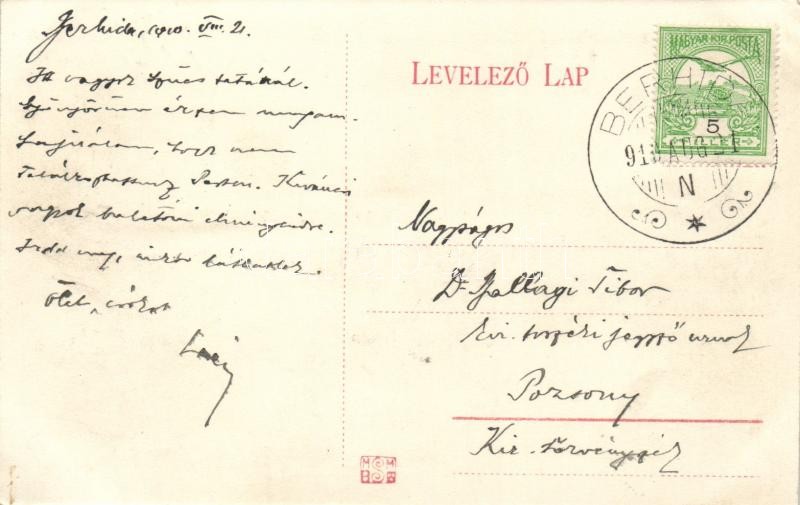 Berhida, 1910. VIII. 21.
Itt vagyok Szűcs tatánál.
Gyönyörűen érzem magam.
Sajnálom, hogy nem
találkozhattunk Pesten. Kiváncsi
vagyok balatoni élményeidre.
Irdd meg, mikor
Ölel, csókol
Laci
LEVELEZŐ LAP
MAGYAR KIR. POSTA
5
FILLÉR
BERHIDA
910 AUG 21
N
Nagyságos
Dr Gallagi Tibor
kir. törvszéki jegyző urnak
Pozsony
Kir. Törvényszék